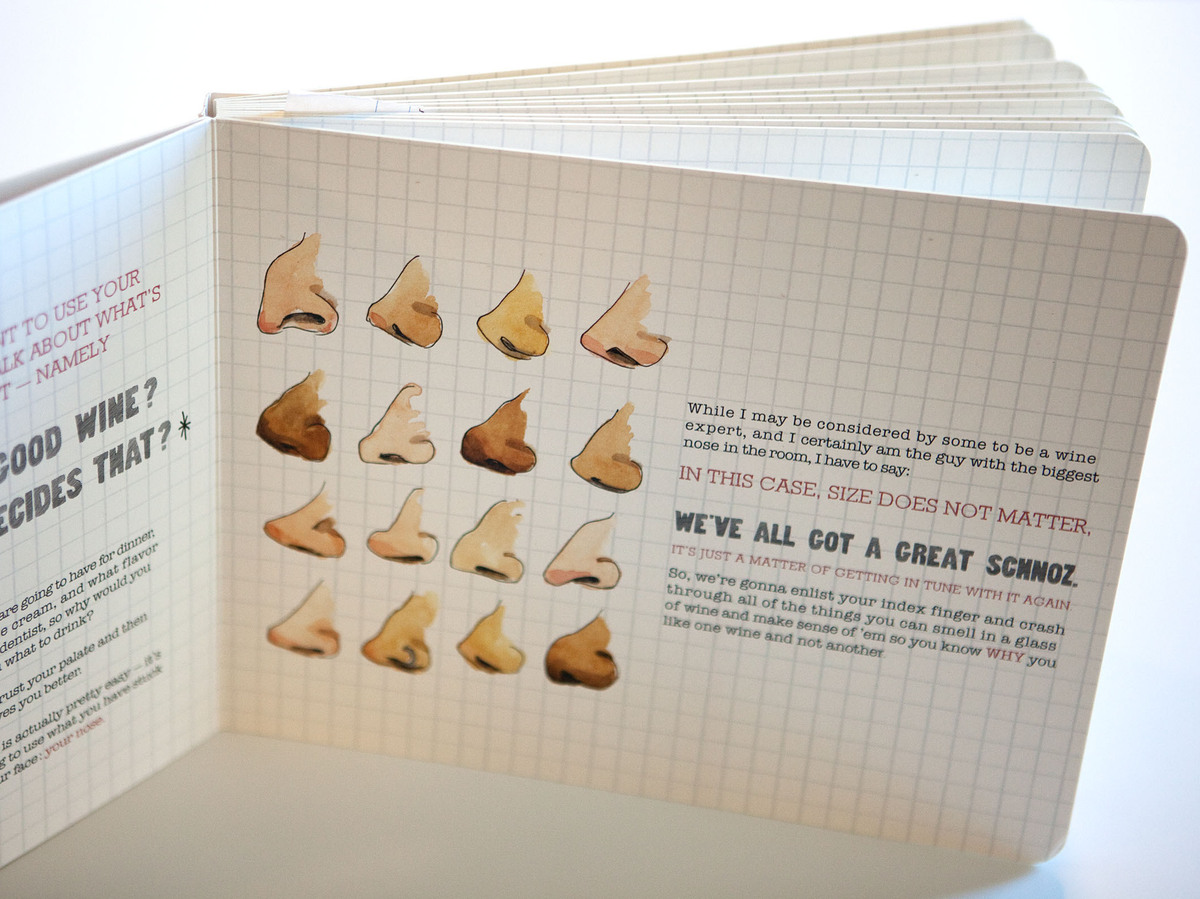 NT TO USE YOUR
ALK ABOUT WHAT'S
T — NAMELY
GOOD WINE?
ECIDES THAT?*
are going to have for dinner,
e cream, and what flavor
dentist, so why would you
what to drink?
rust your palate and then
ves you better.
is actually pretty easy — it's
g to use what you have stuck
ur face: your nose.
While I may be considered by some to be a wine
expert, and I certainly am the guy with the biggest
nose in the room, I have to say:
IN THIS CASE, SIZE DOES NOT MATTER,
WE'VE ALL GOT A GREAT SCHNOZ.
IT'S JUST A MATTER OF GETTING IN TUNE WITH IT AGAIN
So, we're gonna enlist your index finger and crash
through all of the things you can smell in a glass
of wine and make sense of 'em so you know WHY you
like one wine and not another.